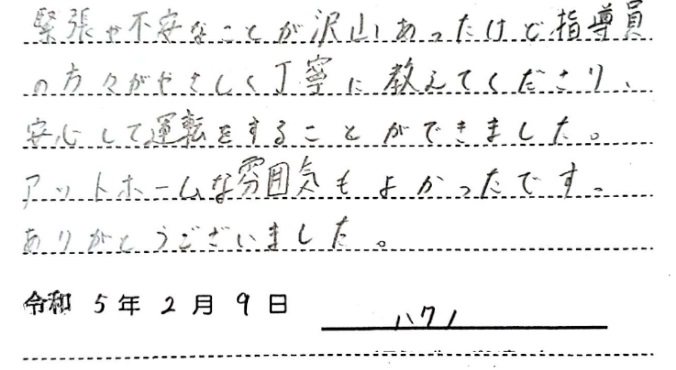 緊張や不安なことが沢山あったけど指導員
の方々がやさしく丁寧に教えてくださり、
安心して運転をすることができました。
アットホームな雰囲気もよかったです。
ありがとうございました。
令和 5年 2月 9日